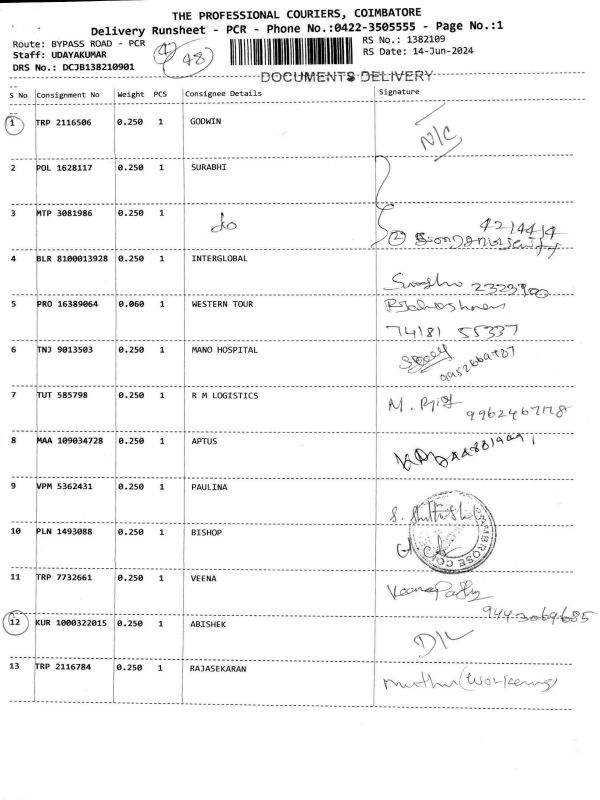 THE PROFESSIONAL COURIERS, COIMBATORE
Delivery Runsheet - PCR - Phone No.:0422-3505555 - Page No.:1
Route: BYPASS ROAD - PCR
Staff: UDAYAKUMAR
DRS No.: DCJB138210901
48
RS No.: 1382109
RS Date: 14-Jun-2024
DOCUMENTS DELIVERY
S No Consignment No Weight PCS Consignee Details Signature
1 TRP 2116506 0.250 1 GODWIN N/C
2 POL 1628117 0.250 1 SURABHI
3 MTP 3081986 0.250 1 do
4214414
2
4 BLR 8100013928 0.250 1 INTERGLOBAL
5 PRO 16389064 0.060 1 WESTERN TOUR
74181 55337
6 TNJ 9013503 0.250 1 MANO HOSPITAL
7 TUT 585798 0.250 1 R M LOGISTICS
9962467178
8 MAA 109034728 0.250 1 APTUS
9 VPM 5362431 0.250 1 PAULINA
10 PLN 1493088 0.250 1 BISHOP
11 TRP 7732661 0.250 1 VEENA
9443069685
12 KUR 1000322015 0.250 1 ABISHEK D/L
13 TRP 2116784 0.250 1 RAJASEKARAN Muthu (Working)